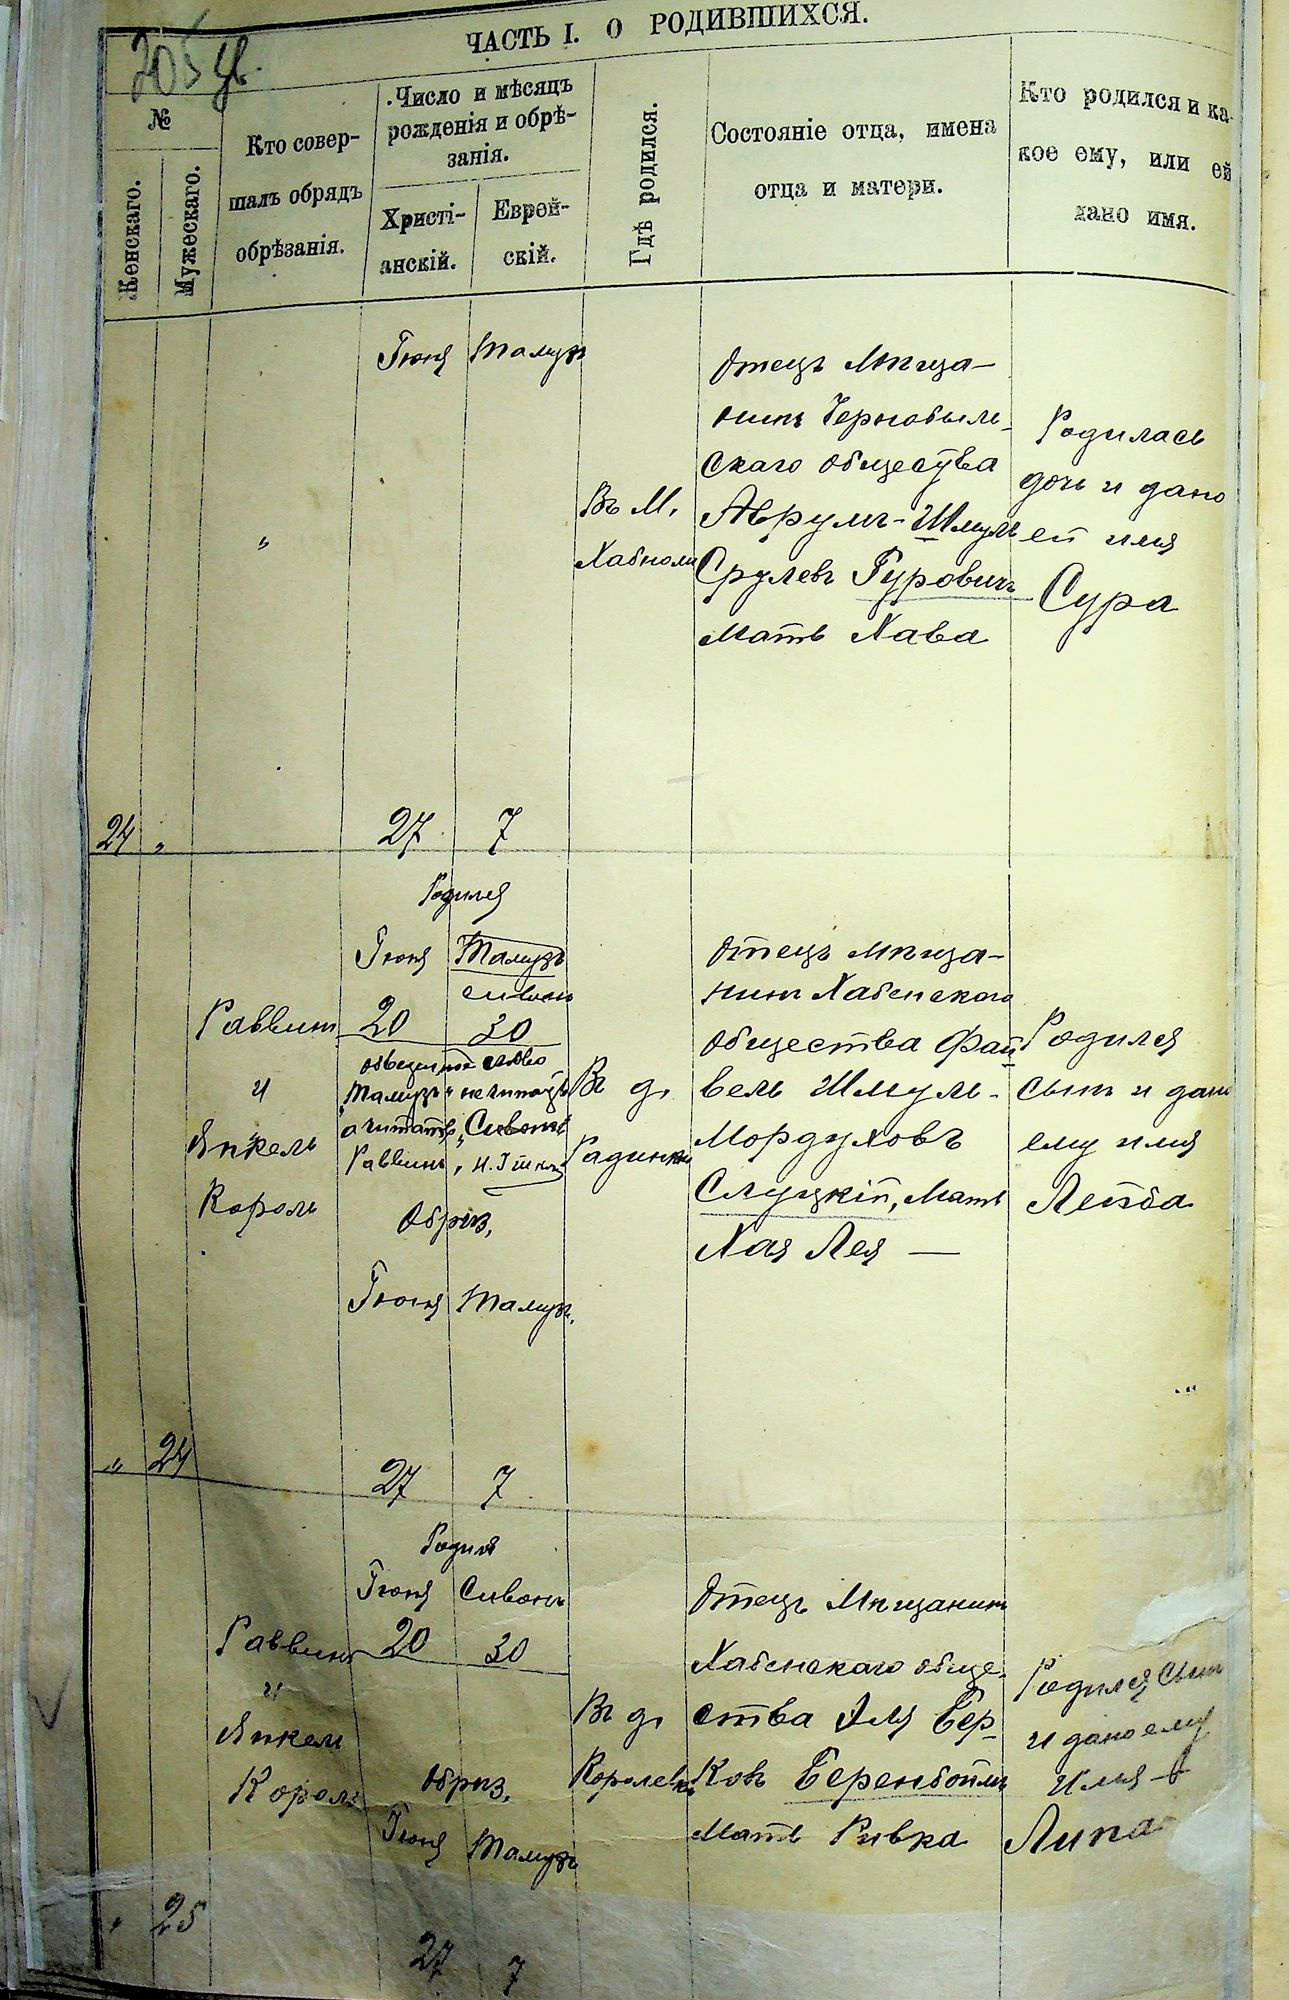 205
ЧАСТЬ I. О РОДИВШИХСЯ.
№
Женскаго.
Мужескаго.
Кто совер-
шалъ обрядъ
обрѣзанія.
Число и мѣсяцъ
рожденія и обрѣ-
занія.
Христі-
анскій.
Еврей-
скій.
Гдѣ родился.
Состояніе отца, имена
отца и матери.
Кто родился и ка-
кое ему, или ей
дано имя.
24 „
„
Іюня Тамузъ
27 7
Въ М.
Хабномъ
Отецъ Мѣща-
нинъ Чернобыль-
скаго общества
Аврумъ-Шмуль
Срулевъ Гуровичъ
Мать Хава
Родилась
дочь и дано
ей имя
Сура
„ 24
Раввинъ
и
Янкель
Король
Родился
Іюня Тамузъ
сивонъ
20 30
„Тамузъ“ не читать
а читать „Сивонъ“
Раввинъ
Обрѣз.
Іюня Тамузъ
27 7
Въ д.
Отецъ мѣща-
нинъ Хабенскаго
общества Фай-
вель Шмуль-
Мордуховъ
Слуцкій, Мать
Хая Лея —
Родился
сынъ и дано
ему имя
Лейба
„ 25
Раввинъ
и
Янкель
Король
Родился
Іюня Сивонъ
20 30
Обрѣз.
Іюня Тамузъ
27 7
Въ д.
Отецъ Мѣщанинъ
Хабенскаго обще-
ства Эля Бер-
ковъ Беренбоймъ
Мать Ривка
Родился сынъ
и дано ему
имя —
Липа